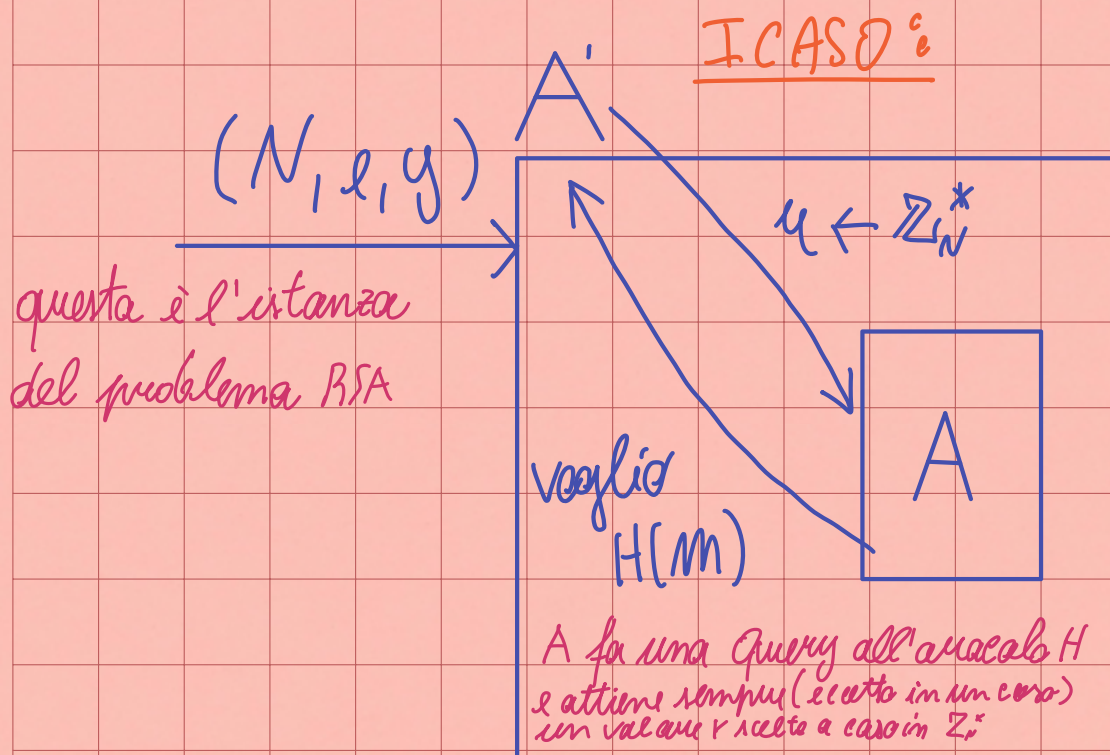 I CASO:
A'
(N, e, y)
questa è l'istanza
del problema RSA
r ← ℤ_N^*
A
voglio
H(m)
A fa una Query all'oracolo H
e ottiene sempre (eccetto in un caso)
un valore r scelto a caso in ℤ_N^*